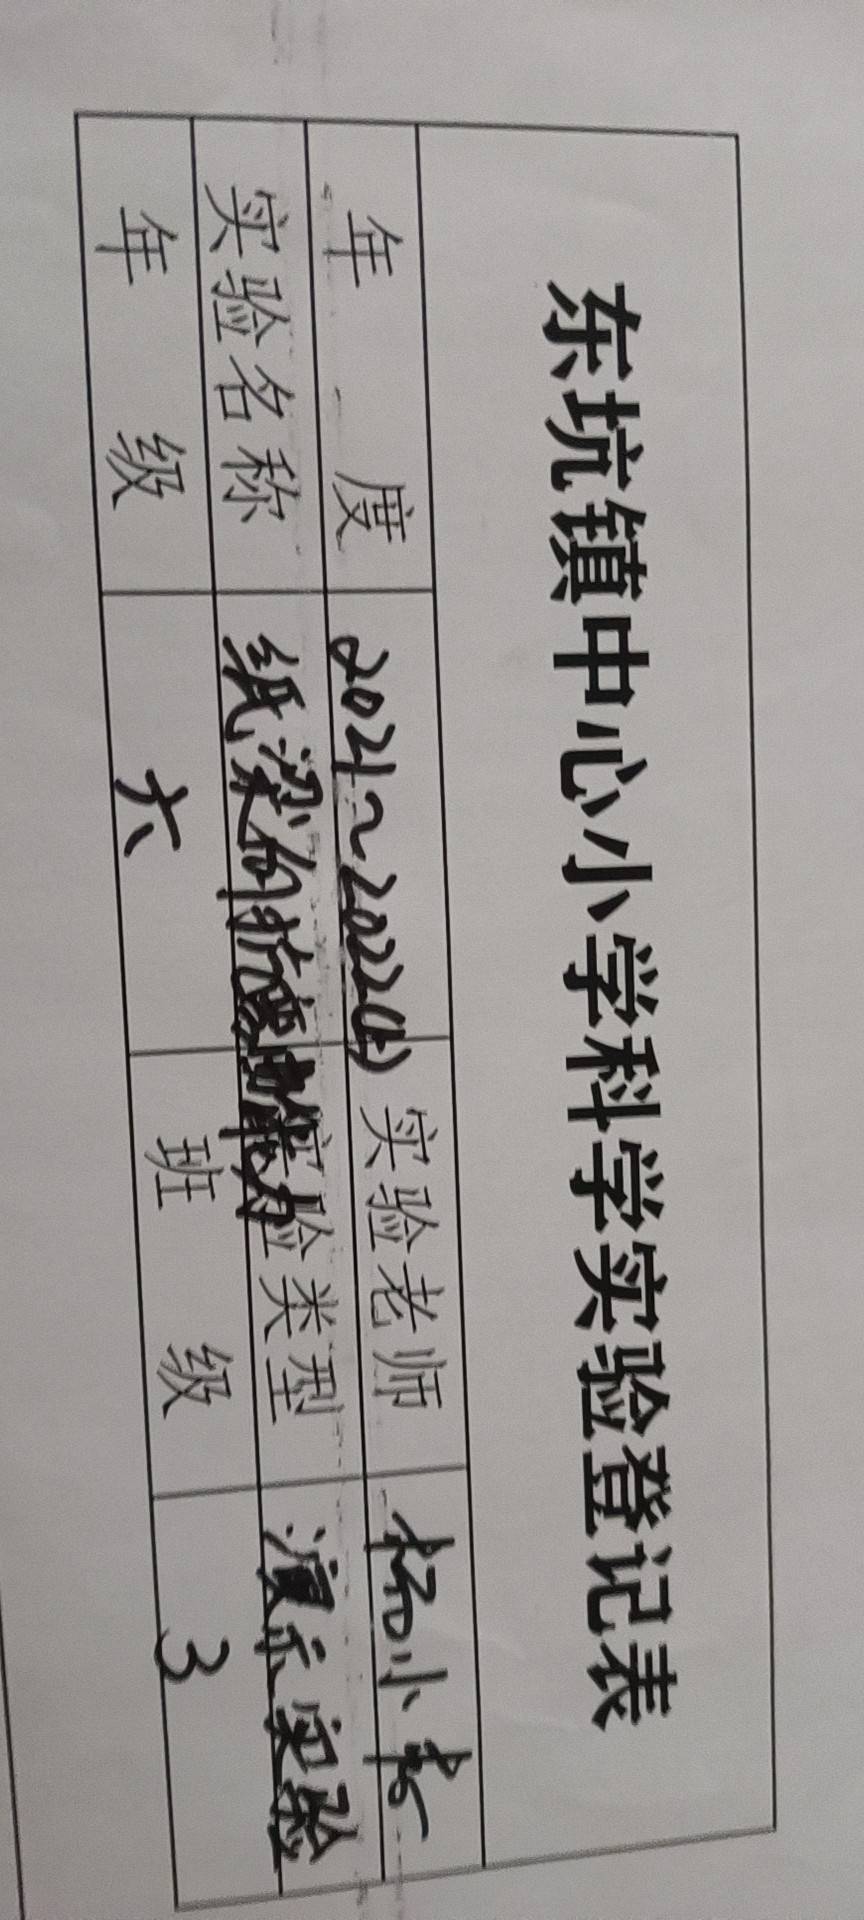 东坑镇中心小学科学实验登记表
年 度 2021~2022(上) 实验老师 杨小
实验名称 纸梁的抗弯曲能力 实验类型 演示实验
年 级 六 班 级 3